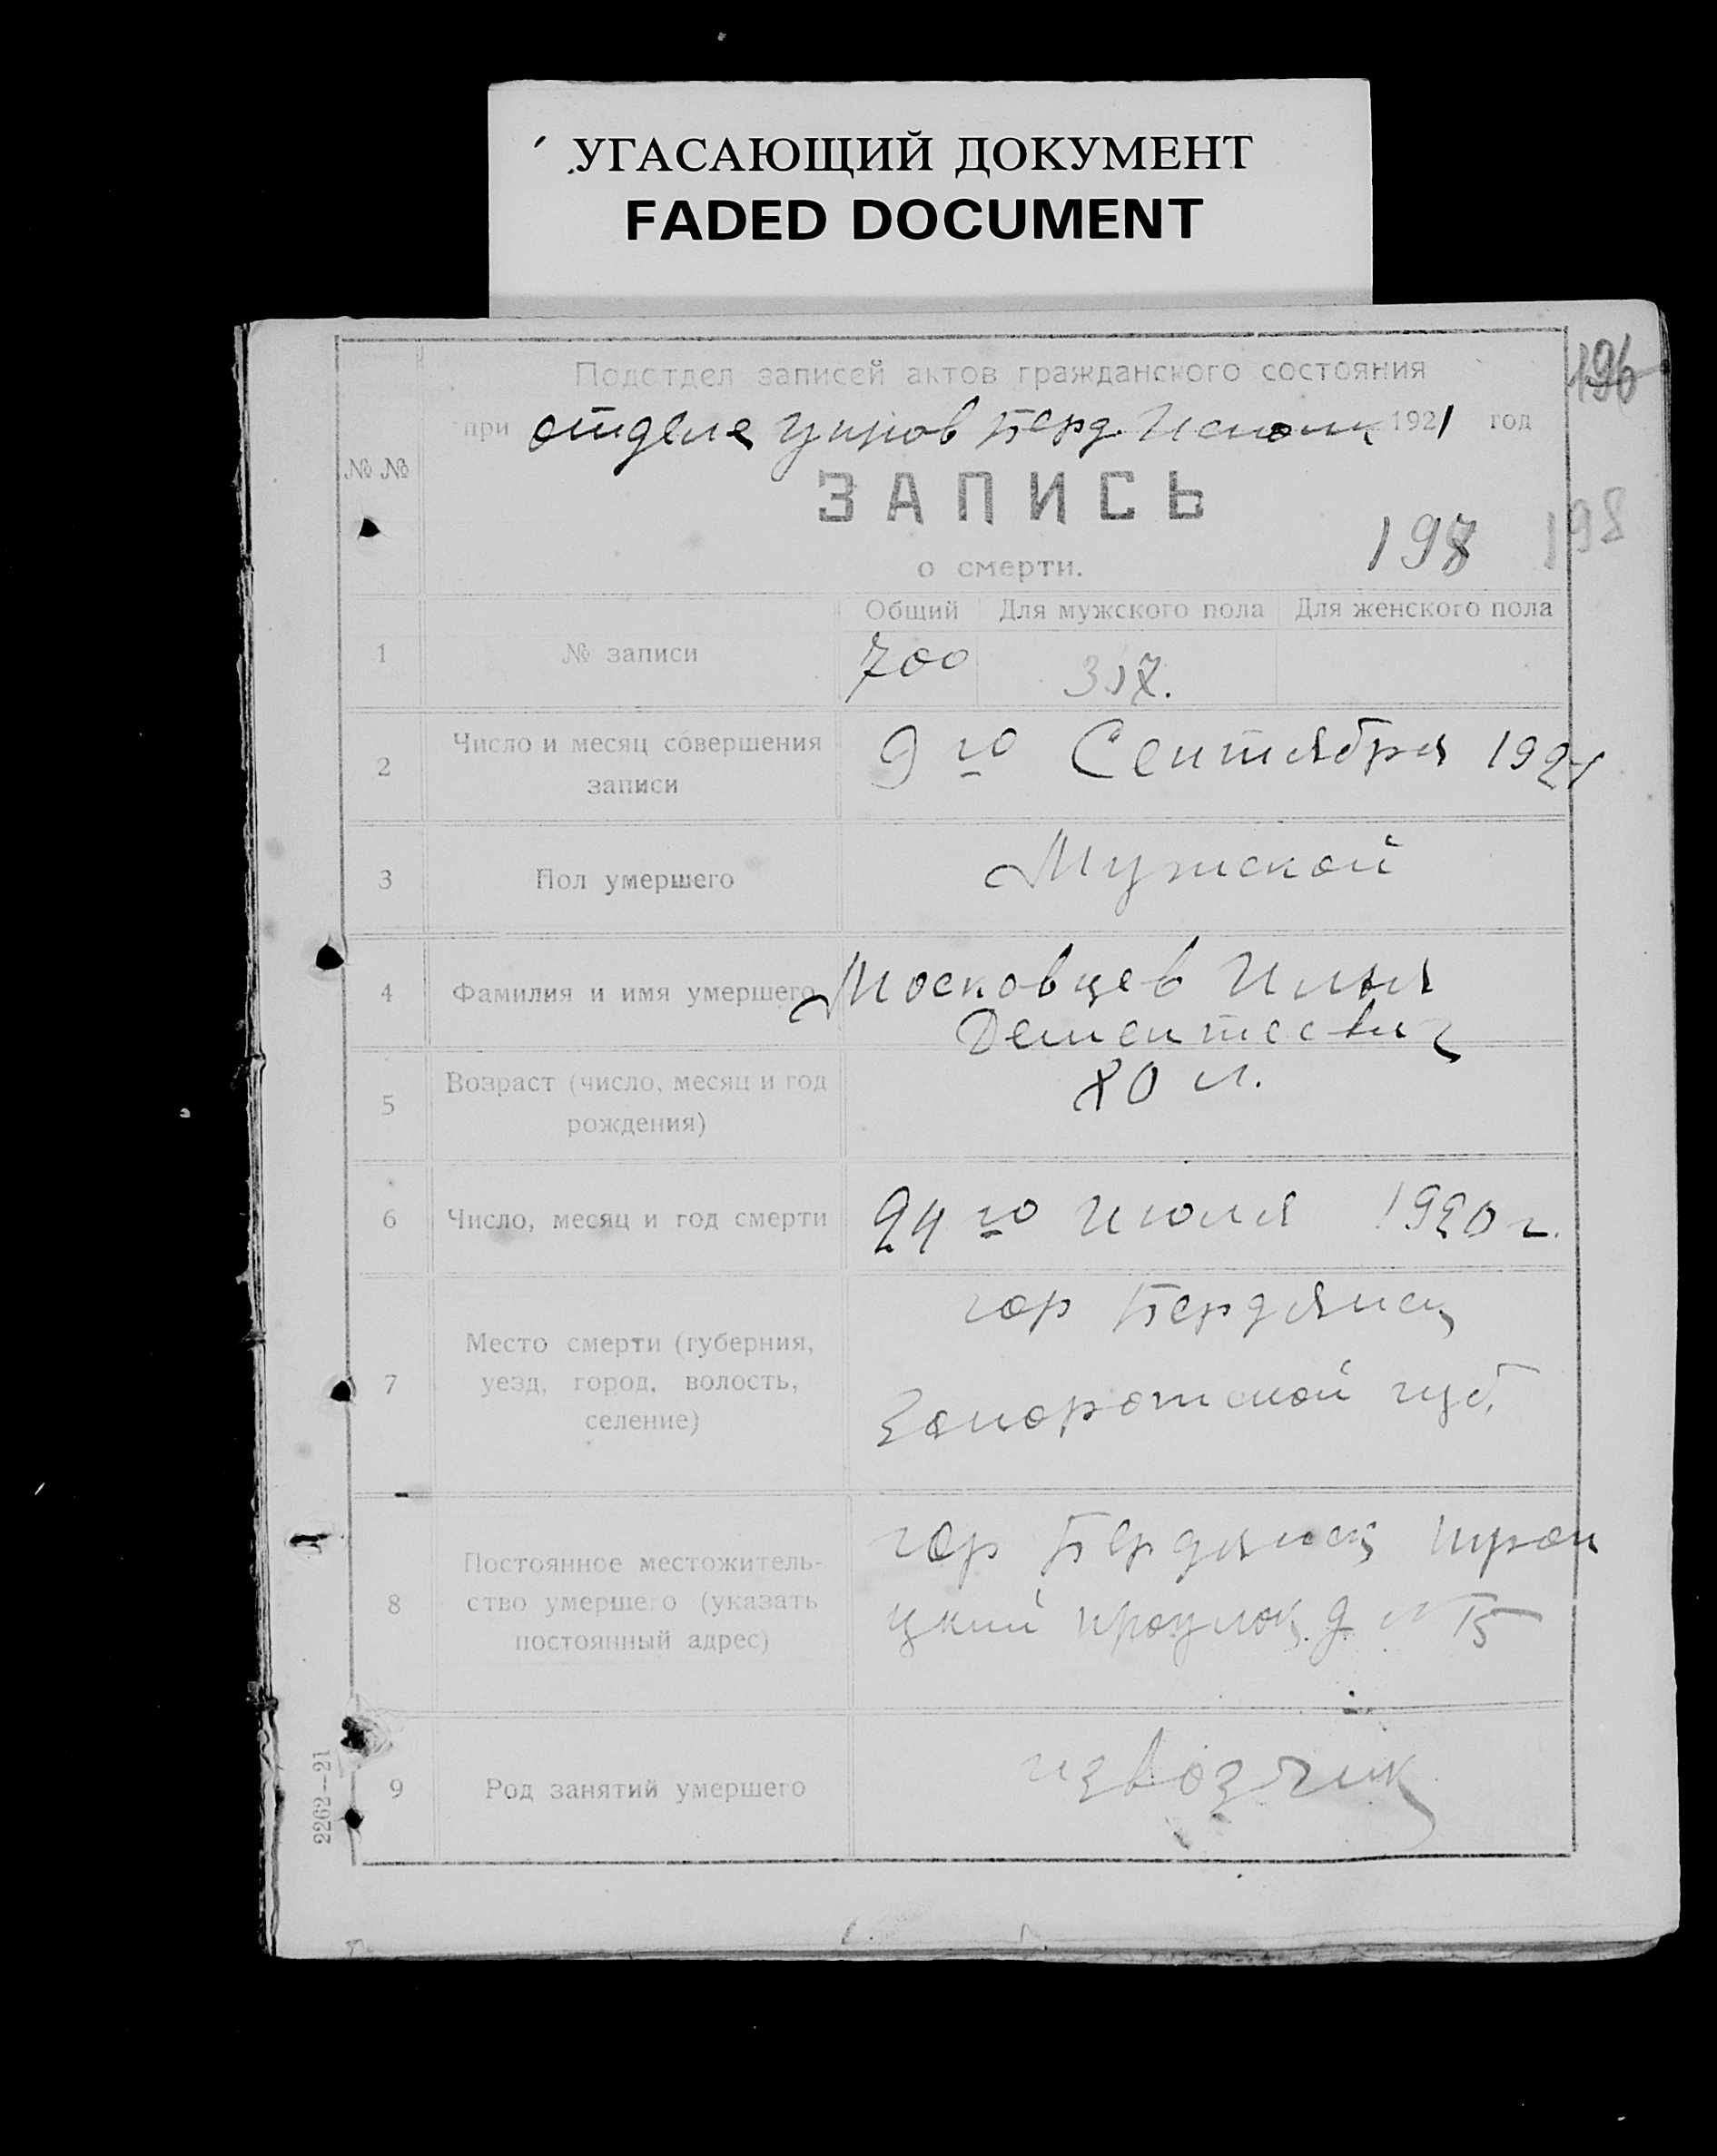 УГАСАЮЩИЙ ДОКУМЕНТ
FADED DOCUMENT
196
Подотдел записей актов гражданского состояния
при отделе управ Берд. Исполк 1921 год
№ №
ЗАПИСЬ
198 198
о смерти.
Общий Для мужского пола Для женского пола
1 № записи 700 317.
2 Число и месяц совершения
записи
9 го Сентября 1921
3 Пол умершего Мужской
4 Фамилия и имя умершего Московцев Илья
Дементеевич
5 Возраст (число, месяц и год
рождения)
80 л.
6 Число, месяц и год смерти 24 го июля 1920 г.
7 Место смерти (губерния,
уезд, город, волость,
селение)
гор Бердянск
Запорожской губ.
8 Постоянное местожитель-
ство умершего (указать
постоянный адрес)
гор Бердянск Трои
цкий проулок д №
9 Род занятий умершего извозчик
2262—21